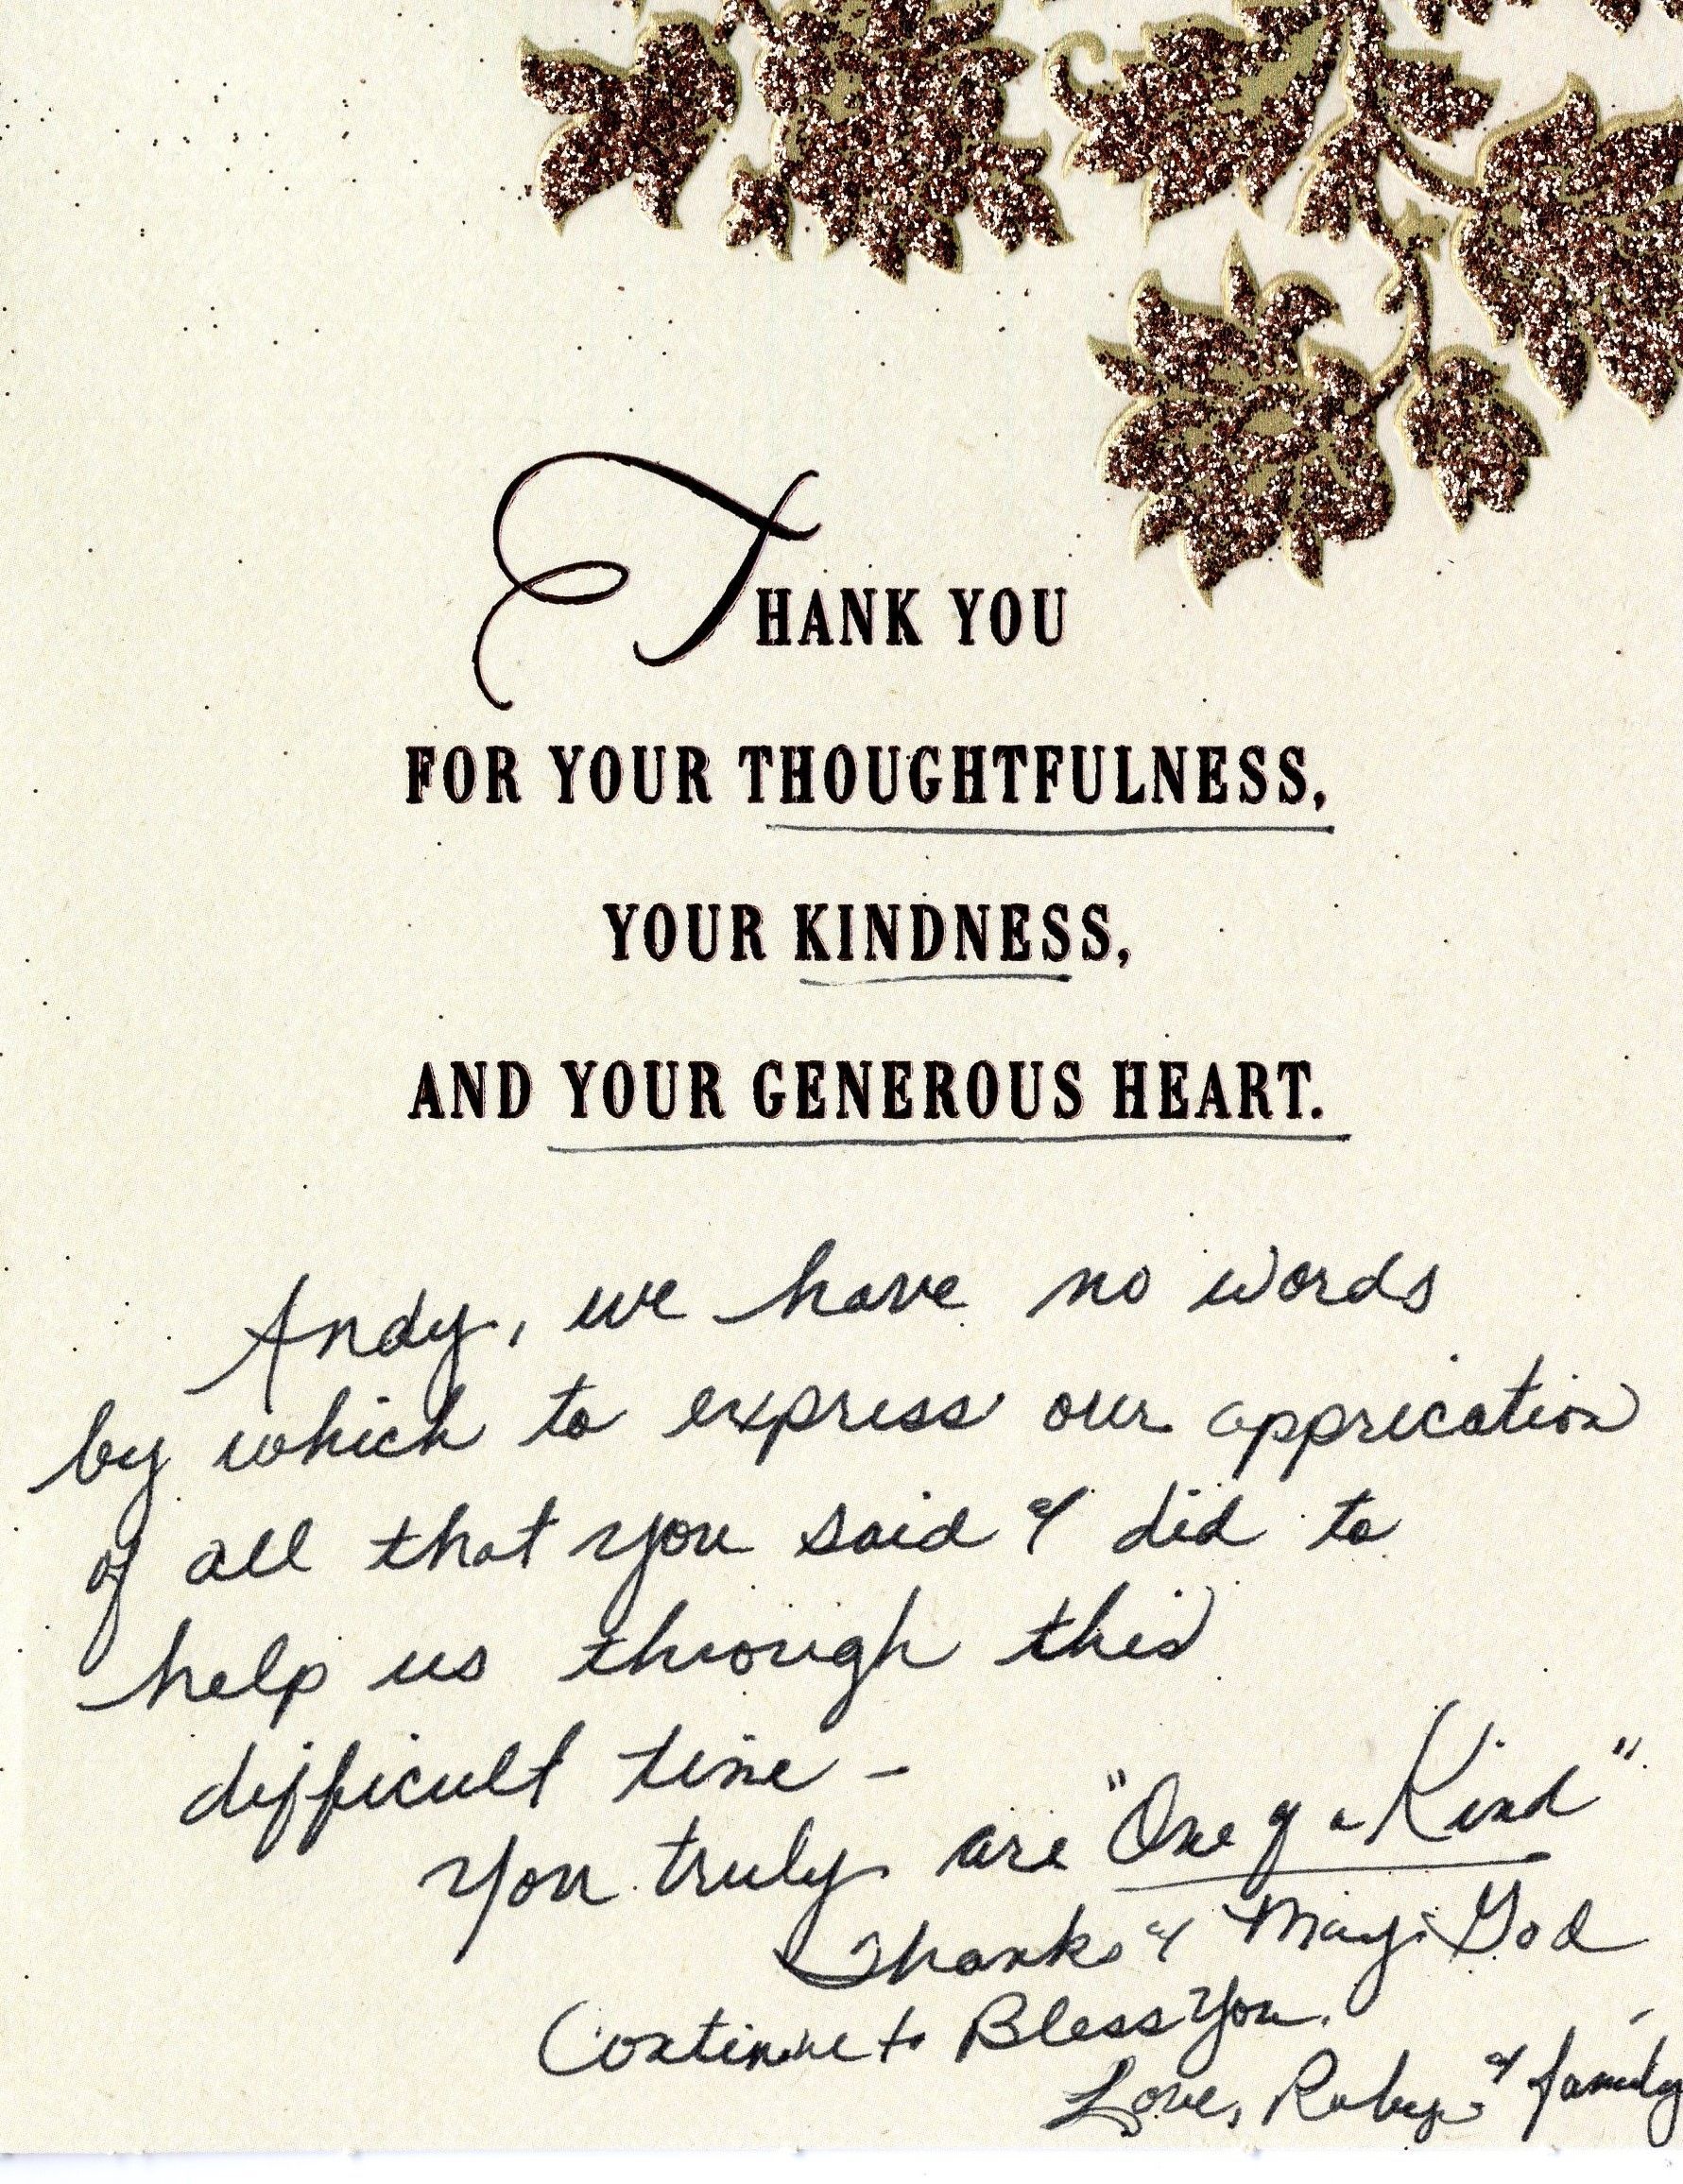 THANK YOU
FOR YOUR THOUGHTFULNESS,
YOUR KINDNESS,
AND YOUR GENEROUS HEART.
Andy, we have no words
by which to express our apprication
of all that you said & did to
help us through this
difficult time –
You truly are "One of a Kind"
Thanks & May God
Continue to Bless You.
Love, Ruby & family